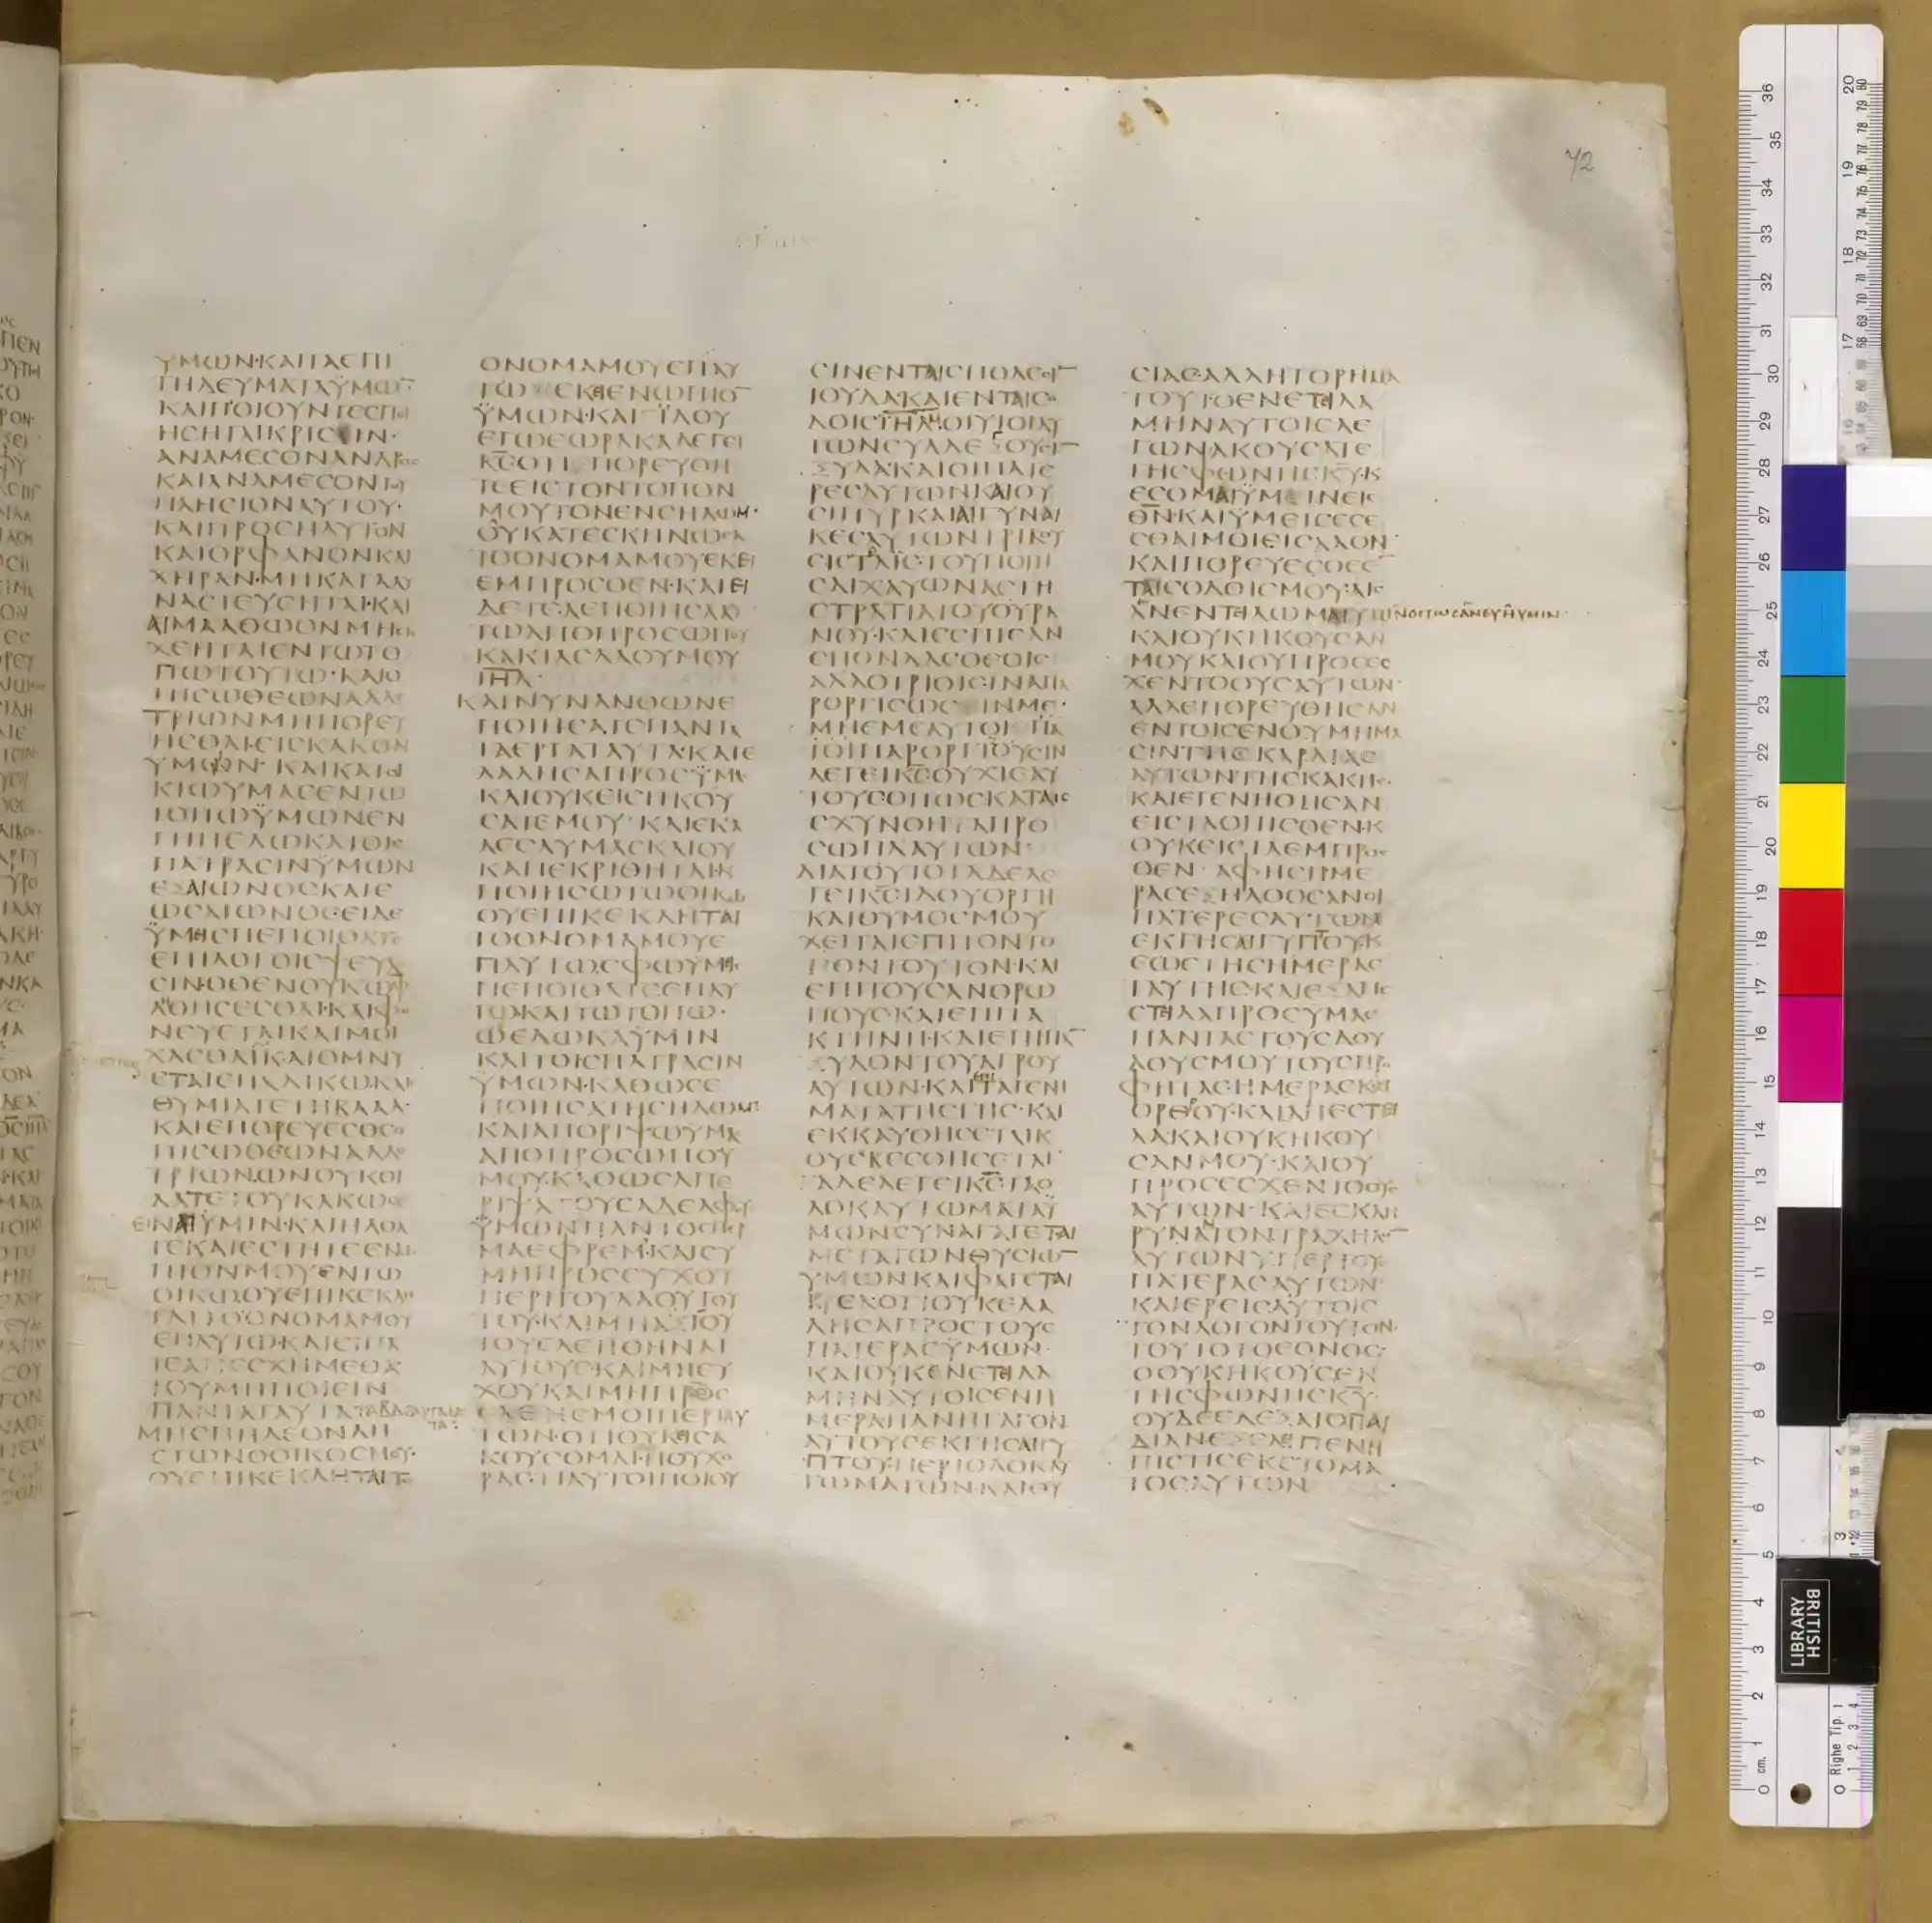 72
ΥΜΩΝ·ΚΑΙΤΑΕΠΙ
ΤΗΔΕΥΜΑΤΑΫΜΩ̅
ΚΑΙΠΟΙΟΥΝΤΕϹΠΟΙ
ΗϹΗΤΑΙΚΡΙϹΙΝ·
ΑΝΑΜΕϹΟΝΑΝΔΡΟϹ
ΚΑΙΑΝΑΜΕϹΟΝΤΟΥ
ΠΛΗϹΙΟΝΑΥΤΟΥ·
ΚΑΙΠΡΟϹΗΛΥΤΟΝ
ΚΑΙΟΡΦΑΝΟΝΚΑΙ
ΧΗΡΑΝ·ΜΗΚΑΤΑΔΥ
ΝΑϹΤΕΥϹΗΤΑΙ·ΚΑΙ
ΑΙΜΑΑΘΩΟΝΜΗΕΚ
ΧΕΗΤΑΙΕΝΤΩΤΟ
ΠΩΤΟΥΤΩ·ΚΑΙΟ
ΠΙϹΩΘΕΩΝΑΛΛΟ
ΤΡΙΩΝΜΗΠΟΡΕΥ
ΗϹΘΑΙ·ΕΙϹΚΑΚΟΝ
ΥΜΩΝ·ΚΑΙΚΑΤΟΙ
ΚΙΩΥΜΑϹΕΝΤΩ
ΤΟΠΩΫΜΩΝΕΝ
ΓΗΗϹΔΩΚΑΤΟΙϹ
ΠΑΤΡΑϹΙΝΫΜΩΝ
ΕΞΑΙΩΝΟϹΚΑΙΕ
ΩϹΑΙΩΝΟϹ·ΕΙΔΕ
ΫΜΕΙϹΠΕΠΟΙΘΑΤΕ
ΕΠΙΛΟΓΟΙϹΨΕΥΔΕ
ϹΙΝ·ΟΘΕΝΟΥΚΩΦΕ
ΛΗΘΗϹΕϹΘΑΙ·ΚΑΙΦΟ
ΝΕΥΕΤΑΙΚΑΙΜΟΙ
ΧΑϹΘΑΙΚΑΙΟΜΝΥ
ΕΤΑΙΕΠΑΔΙΚΩ·ΚΑΙ
ΘΥΜΙΑΤΕΤΗΒΑΑΛ·
ΚΑΙΕΠΟΡΕΥΕϹΘΕΟ
ΠΙϹΩΘΕΩΝΑΛΛΟ
ΤΡΙΩΝ·ΩΝΟΥΚΟΙ
ΔΑΤΕ·ΤΟΥΚΑΚΩϹ
ΕΙΝΑΙΫΜΙΝ·ΚΑΙΗΛΘΑ
ΤΕΚΑΙΕϹΤΗΤΕΕΝΩ
ΠΙΟΝΜΟΥΕΝΤΩ
ΟΙΚΩΟΥΕΠΙΚΕΚΛΗ
ΤΑΙΤΟΟΝΟΜΑΜΟΥ
ΕΠΑΥΤΩ·ΚΑΙΕΙΠΑ
ΤΕΑΠΕϹΧΗΜΕΘΑ
ΤΟΥΜΗΠΟΙΕΙΝ
ΠΑΝΤΑΤΑΥΤΑ
ΜΗϹΠΗΛΕΟΝΛΗ
ϹΤΩΝΟΟΙΚΟϹΜΟΥ·
ΟΥΕΠΙΚΕΚΛΗΤΑΙΤΟ
ΟΝΟΜΑΜΟΥΕΠΑΥ
ΤΩΕΚΕΙΕΝΩΠΙΟ̅
ΫΜΩΝ·ΚΑΙΪΔΟΥ
ΕΓΩΕΩΡΑΚΑΛΕΓΕΙ
Κ̅Ϲ̅ΟΤΙΠΟΡΕΥΘΗ
ΤΕΕΙϹΤΟΝΤΟΠΟΝ
ΜΟΥΤΟΝΕΝϹΗΛΩΜ·
ΟΥΚΑΤΕϹΚΗΝΩϹΑ
ΤΟΟΝΟΜΑΜΟΥΕΚΕΙ
ΕΜΠΡΟϹΘΕΝ·ΚΑΙΕΙ
ΔΕΤΕΑΕΠΟΙΗϹΑΑΥ
ΤΩΑΠΟΠΡΟϹΩΠΟΥ
ΚΑΚΙΑϹΛΑΟΥΜΟΥ
Ι̅Η̅Λ̅·
ΚΑΙΝΥΝΑΝΘΩΝΕ
ΠΟΙΗϹΑΤΕΠΑΝΤΑ
ΤΑΕΡΓΑΤΑΥΤΑ·ΚΑΙΕ
ΛΑΛΗϹΑΠΡΟϹΫΜΑϹ
ΚΑΙΟΥΚΕΙϹΗΚΟΥ
ϹΑΤΕΜΟΥ·ΚΑΙΕΚΑ
ΛΕϹΑΥΜΑϹΚΑΙΟΥ
ΚΑΠΕΚΡΙΘΗΤΑΙ·Κ
ΠΟΙΗϹΩΤΩΟΙΚΩ
ΟΥΕΠΙΚΕΚΛΗΤΑΙ
ΤΟΟΝΟΜΑΜΟΥΕ
ΠΑΥΤΩ·ΕΦΩΥΜΕΙϹ
ΠΕΠΟΙΘΑΤΕΕΠΑΥ
ΤΩ·ΚΑΙΤΩΤΟΠΩ·
ΩΕΔΩΚΑΫΜΙΝ
ΚΑΙΤΟΙϹΠΑΤΡΑϹΙΝ
ΫΜΩΝ·ΚΑΘΩϹΕ
ΠΟΙΗϹΑΤΗϹΗΛΩΜ·
ΚΑΙΑΠΟΡΙΨΩΥΜΑϹ
ΑΠΟΠΡΟϹΩΠΟΥ
ΜΟΥ·ΚΑΘΩϹΑΠΕ
ΡΙΨΑΤΟΥϹΑΔΕΛΦΟΥϹ
ΫΜΩΝΠΑΝΤΟϹΠΕΡ
ΜΑΕΦΡΕΜ·ΚΑΙϹΥ
ΜΗΠΡΟϹΕΥΧΟΥ
ΠΕΡΙΤΟΥΛΑΟΥΤΟΥ
ΤΟΥ·ΚΑΙΜΗΑΞΙΟΥ
ΤΟΥΕΛΕΗΘΗΝΑΙ
ΑΥΤΟΥϹ·ΚΑΙΜΗΕΥ
ΧΟΥΚΑΙΜΗΠΡΟϹ
ΕΛΘΗϹΜΟΙΠΕΡΙΑΥ
ΤΩΝ·ΟΤΙΟΥΚΕΙϹΑ
ΚΟΥϹΟΜΑΙ·ΗΟΥΧΟ
ΡΑϹΤΙΑΥΤΟΙΠΟΙΟΥ
ϹΙΝΕΝΤΑΙϹΠΟΛΕϹΙ̅
ΙΟΥΔΑ·ΚΑΙΕΝΤΑΙϹΟ
ΔΟΙϹ
ΤΩΝϹΥΛΛΕΓΟΥϹΙ̅
ΞΥΛΑ·ΚΑΙΟΙΠΑΤΕ
ΡΕϹΑΥΤΩΝΚΑΙΟΥ
ϹΙΠΥΡ·ΚΑΙΑΙΓΥΝΑΙ
ΚΕϹΑΥΤΩΝΤΡΙΒΟΥ
ϹΙϹΤΑΙϹ·ΤΟΥΠΟΙΗ
ϹΑΙΧΑΥΩΝΑϹΤΗ
ϹΤΡΑΤΙΑΤΟΥΟΥΡΑ
ΝΟΥ·ΚΑΙΕϹΠΙϹΑΝ
ϹΠΟΝΔΑϹΘΕΟΙϹ
ΑΛΛΟΤΡΙΟΙϹ·ΙΝΑΠΑ
ΡΟΡΓΙϹΩϹΙΝΜΕ·
ΜΗΕΜΕΑΥΤΟΙΠΑ
ΡΟΡΓΙΖΟΥϹΙΝ
ΛΕΓΕΙΚ̅Ϲ̅ΟΥΧΙΕΑΥ
ΤΟΥϹΟΠΩϹΚΑΤΑΙϹ
ΧΥΝΘΗΤΑΠΡΟ
ϹΩΠΑΑΥΤΩΝ·
ΔΙΑΤΟΥΤΟΤΑΔΕΛΕ
ΓΕΙΚ̅Ϲ̅·ΙΔΟΥΟΡΓΗ
ΚΑΙΘΥΜΟϹΜΟΥ
ΧΕΙΤΑΙΕΠΙΤΟΝΤΟ
ΠΟΝΤΟΥΤΟΝ·ΚΑΙ
ΕΠΙΤΟΥϹΑΝΘΡΩ
ΠΟΥϹ·ΚΑΙΕΠΙΤΑ
ΚΤΗΝΗ·ΚΑΙΕΠΙΠΑ̅
ΞΥΛΟΝΤΟΥΑΓΡΟΥ
ΑΥΤΩΝ·ΚΑΙΕΠΙΤΑΓΕΝΗ
ΜΑΤΑΤΗϹΓΗϹ·ΚΑΙ
ΕΚΚΑΥΘΗϹΕΤΑΙΚ
ΟΥϹΒΕϹΘΗϹΕΤΑΙ
ΤΑΔΕΛΕΓΕΙΚ̅Ϲ̅·ΤΑΟ
ΛΟΚΑΥΤΩΜΑΤΑΫ
ΜΩΝϹΥΝΑΓΑΓΕΤΑΙ
ΜΕΤΑΤΩΝΘΥϹΙΩ̅
ΥΜΩΝΚΑΙΦΑΓΕΤΑΙ
ΚΡΕΑ·ΟΤΙΟΥΚΕΛΑ
ΛΗϹΑΠΡΟϹΤΟΥϹ
ΠΑΤΕΡΑϹΫΜΩΝ·
ΚΑΙΟΥΚΕΝΕΤΙΛΑ
ΜΗΝΑΥΤΟΙϹΕΝΗ
ΜΕΡΑΗΑΝΗΓΑΓΟΝ
ΑΥΤΟΥϹΕΚΓΗϹΑΙΓΥ
ΠΤΟΥ·ΠΕΡΙΟΛΟΚΑΥ
ΤΩΜΑΤΩΝ·ΚΑΙΘΥ
ϹΙΑϹ·ΑΛΛΗΤΟΡΗΜΑ
ΤΟΥΤΟΕΝΕΤΙΛΑ
ΜΗΝΑΥΤΟΙϹΛΕ
ΓΩΝΑΚΟΥϹΑΤΕ
ΤΗϹΦΩΝΗϹΜΟΥ·Κ
ΕϹΟΜΑΙΫΜΙΝΕΙϹ
Θ̅Ν̅·ΚΑΙΫΜΕΙϹΕϹΕ
ϹΘΑΙΜΟΙΕΙϹΛΑΟΝ
ΚΑΙΠΟΡΕΥΕϹΘΕΕ̅
ΤΑΙϹΟΔΟΙϹΜΟΥ·ΑΙϹ
ΑΝΕΝΤΙΛΩΜΑΙΥΜΙΝΟΠΩϹΑΝΕΥΗΥΜΙΝ
ΚΑΙΟΥΚΗΚΟΥϹΑΝ
ΜΟΥΚΑΙΟΥΠΡΟϹΕϹ
ΧΕΝΤΟΟΥϹΑΥΤΩΝ·
ΑΛΛΕΠΟΡΕΥΘΗϹΑΝ
ΕΝΤΟΙϹΕΝΘΥΜΗΜΑ
ϹΙΝΤΗϹΚΑΡΔΙΑϹ
ΑΥΤΩΝΤΗϹΚΑΚΗϹ·
ΚΑΙΕΓΕΝΗΘΗϹΑΝ
ΕΙϹΤΑΟΠΙϹΘΕΝ·Κ
ΟΥΚΕΙϹΤΑΕΜΠΡΟϹ
ΘΕΝ·ΑΦΗϹΗΜΕ
ΡΑϹΕΞΗΛΘΟϹΑΝΟΙ
ΠΑΤΕΡΕϹΑΥΤΩΝ
ΕΚΓΗϹΑΙΓΥΠΤΟΥ·Κ
ΕΩϹΤΗϹΗΜΕΡΑϹ
ΤΑΥΤΗϹ·ΚΑΙΕΞΑΠΕ
ϹΤΙΛΑΠΡΟϹΥΜΑϹ
ΠΑΝΤΑϹΤΟΥϹΔΟΥ
ΛΟΥϹΜΟΥΤΟΥϹΠΡΟ
ΦΗΤΑϹ·ΗΜΕΡΑϹΚΑΙ
ΟΡΘΡΟΥ·ΚΑΙΑΠΕϹΤΕΙ
ΛΑΚΑΙΟΥΚΗΚΟΥ
ϹΑΝΜΟΥ·ΚΑΙΟΥ
ΠΡΟϹΕϹΧΕΝΤΟΟΥϹ
ΑΥΤΩΝ·ΚΑΙΕϹΚΛΗ
ΡΥΝΑΝΤΟΝΤΡΑΧΗΛΟ̅
ΑΥΤΩΝΥΠΕΡΤΟΥϹ
ΠΑΤΕΡΑϹΑΥΤΩΝ·
ΚΑΙΕΡΕΙϹΑΥΤΟΙϹ
ΤΟΝΛΟΓΟΝΤΟΥΤΟΝ·
ΤΟΥΤΟΤΟΕΘΝΟϹ·
ΟΟΥΚΗΚΟΥϹΕΝ
ΤΗϹΦΩΝΗϹΚ̅Υ̅·
ΟΥΔΕΕΔΕΞΑΤΟΠΑΙ
ΔΙΑΝ
ΠΙϹΤΙϹΕΚϹΤΟΜΑ
ΤΟϹΑΥΤΩΝ
BRITISH LIBRARY
cm.
0 Righe Tip.